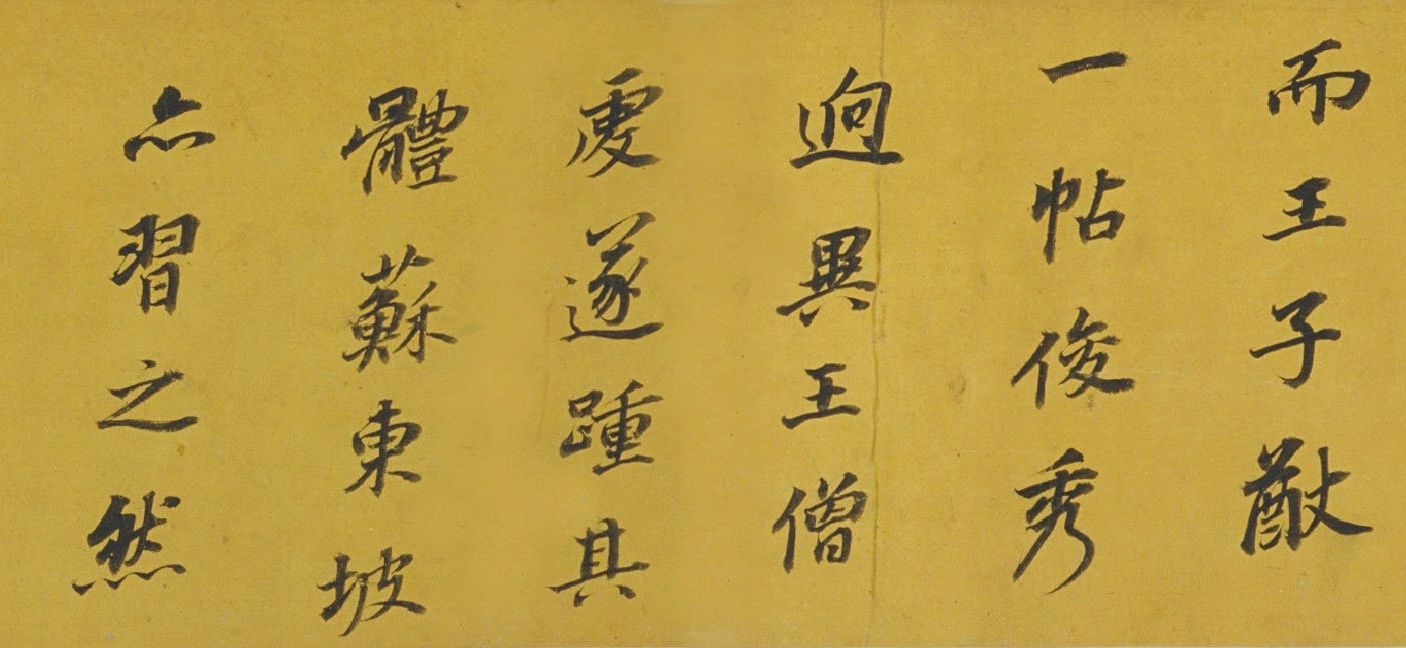 而王子猷
一帖俊秀
逈異王僧
虔遂踵其
體蘇東坡
亦習之然